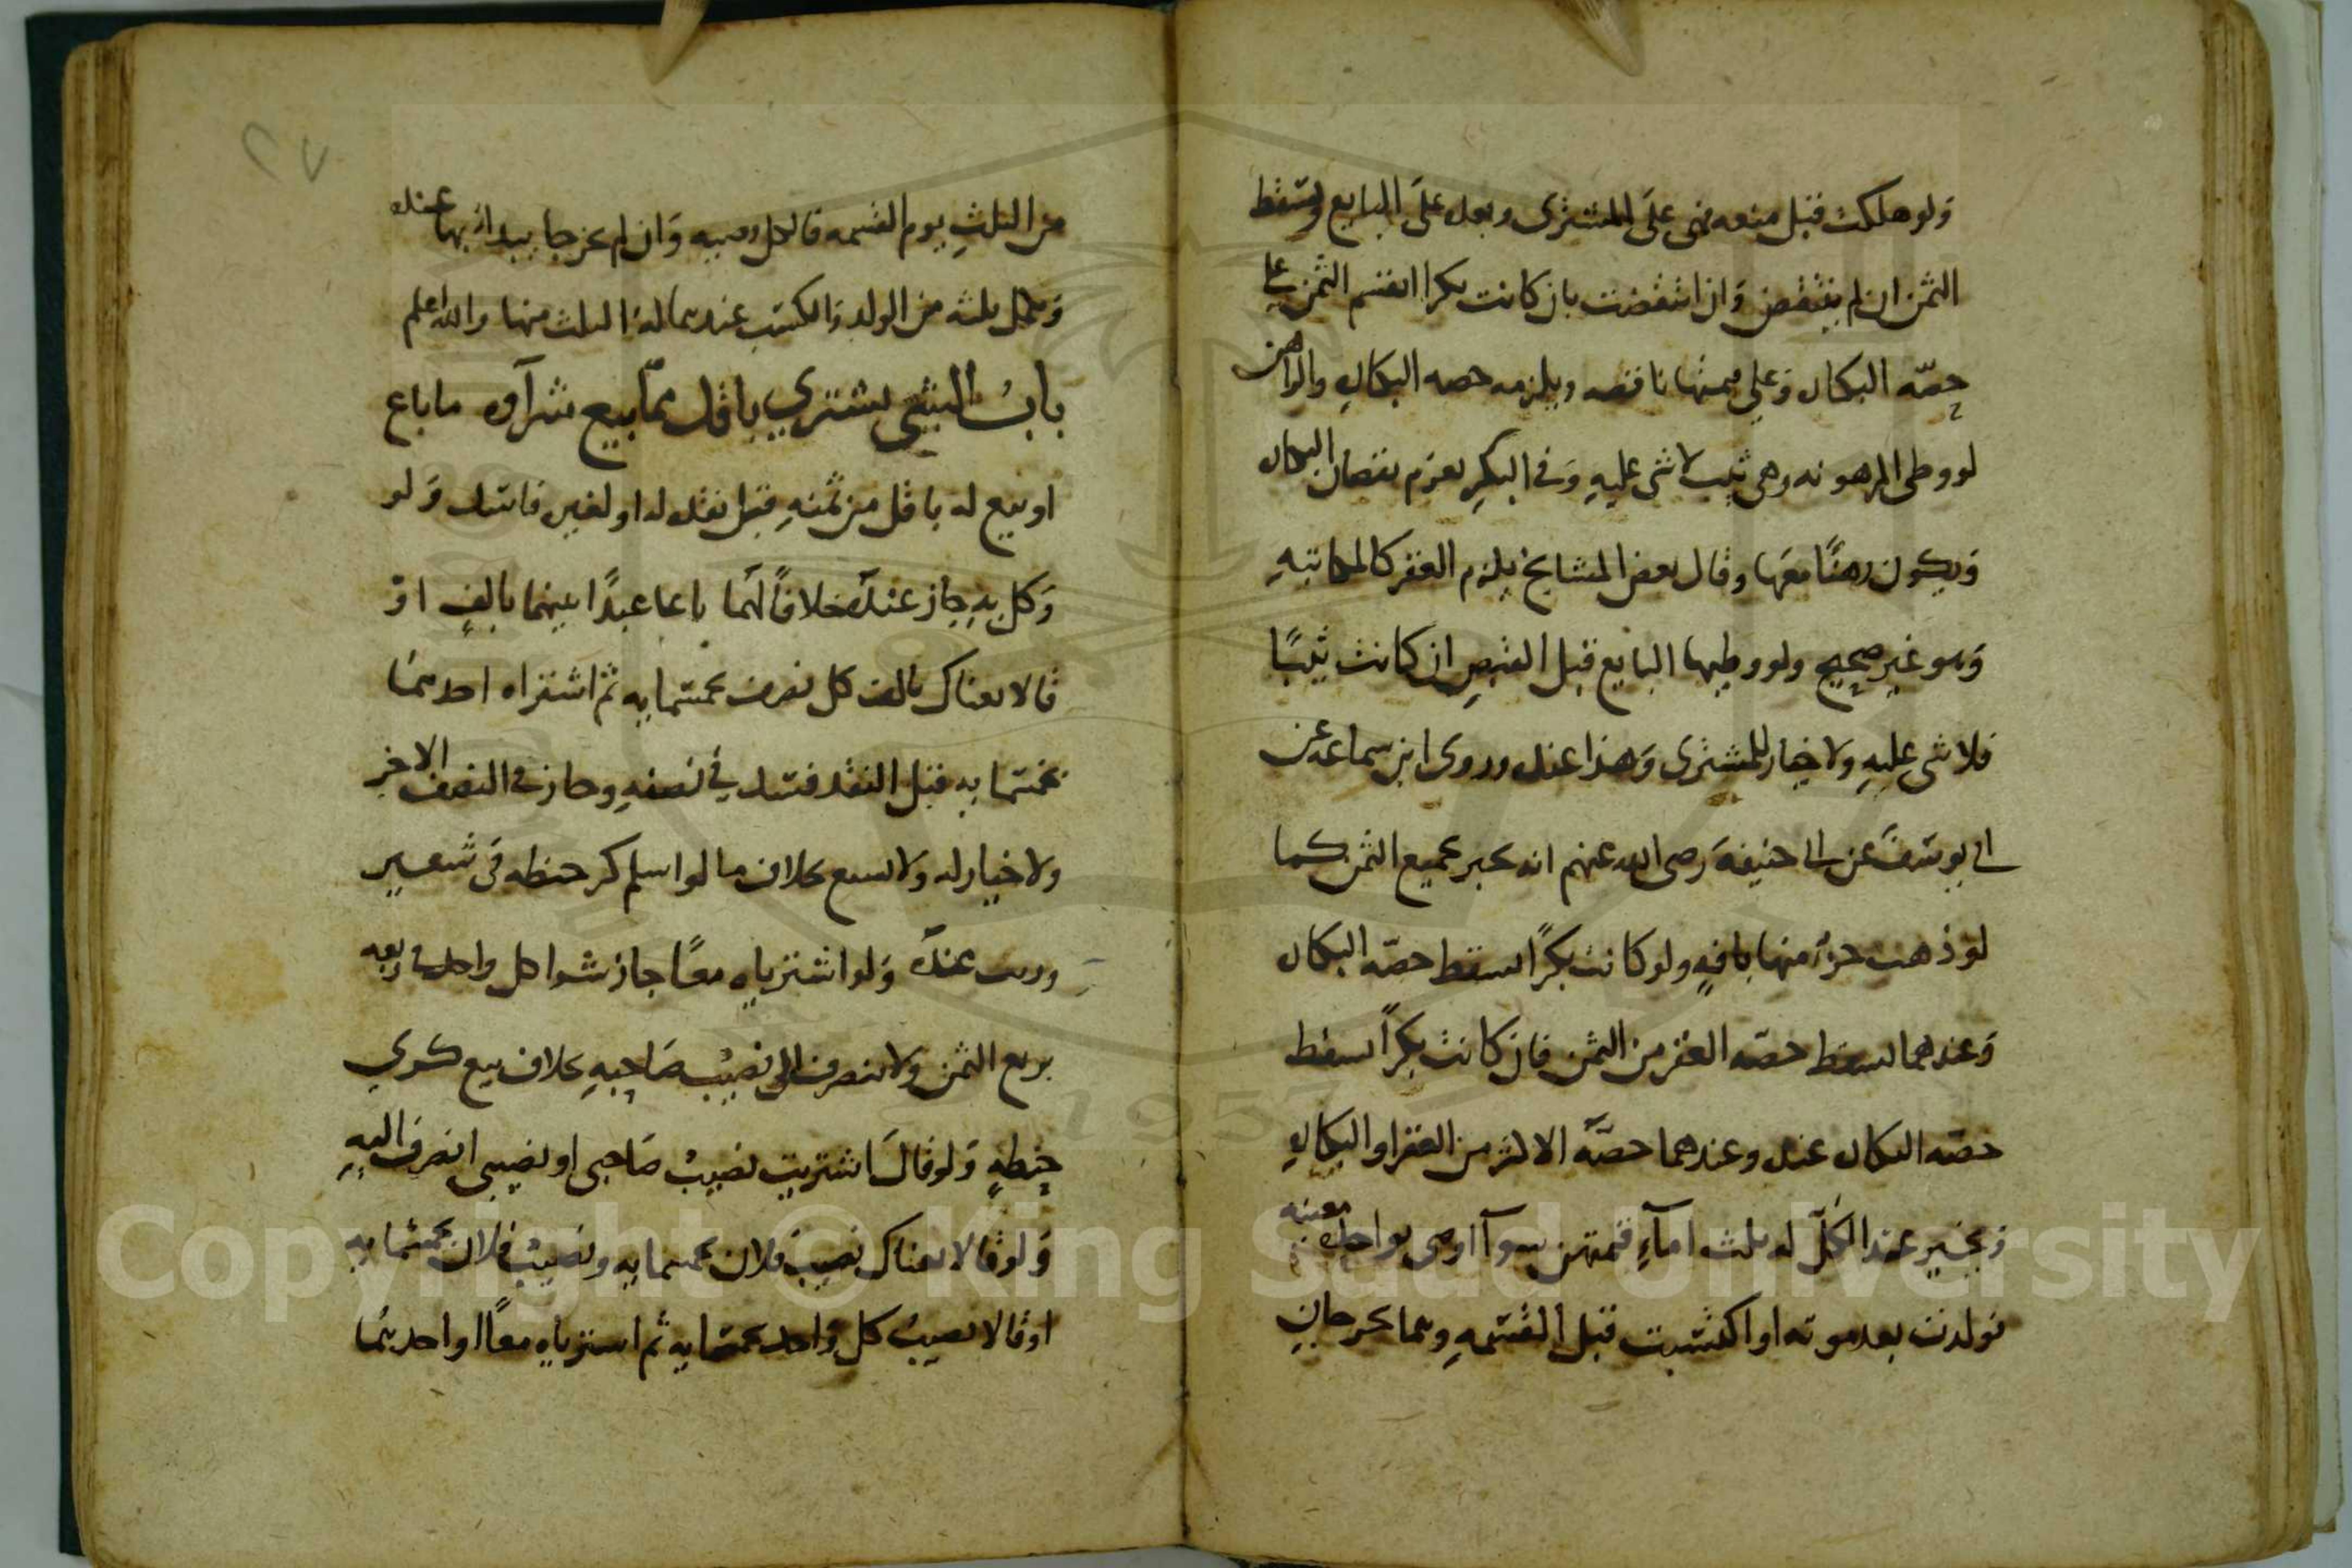 ولو هلكت قبل منعه فهى على المشترى وبعده على البايع ويسقط
الثمن ان لم ينتقض وان انتقضت بان كانت بكرا انقسم الثمن على
حصه البكاره وعلى قيمتها ناقصه ويلزمه حصه البكاره والراهن
لو وطى المرهونه وهى ثيب لا شى عليه وفى البكر يغرم نقصان البكاره
ويكون رهنا معها وقال بعض المشايخ يلزم العقر كالمكاتبه
وهو غير صحيح ولو وطيها البايع قبل القبض ان كانت ثيبا
فلا شى عليه ولا خيار للمشترى وهذا عنده وروى ابن سماعه عن
ابى يوسف عن ابى حنيفه رضى الله عنهم انه يخير بجميع الثمن كما
لو ذهب جزء منها بافه ولو كانت بكرا يسقط حصه البكاره
وعندهما يسقط حصه العقر من الثمن فان كانت بكرا يسقط
حصه البكاره عنده وعندهما حصه الاكثر من العقر او البكاره
ويخير عند الكل له ثلث امآء قيمتهن سوآ اوصى بواحده معينه
فولدت بعد موته او اكتسبت قبل القسمه وهما يخرجان
من الثلث يوم القسمه فالكل وصيه وان لم يخرجا يبدا بها عنده
ويكمل ثلثه من الولد والكسب عندهما له الثلث منها والله اعلم
باب الشى يشترى باقل مما بيع شرآوه ما باع
او بيع له باقل من ثمنه قبل نقده له او لغيره فاسد ولو
وكل به جاز عنده خلافا لهما باعا عبدا بينهما بالف او
قالا بعناك بالف كل نصف بخمسمايه ثم اشتراه احدهما
بخمسمايه قبل النقد فسد فى نصفه وجاز فى النصف الاخر
ولا خيار له ولا يشيع بخلاف ما لو اسلم كر حنطه فى شعير
وزيت عنده ولو اشترياه معا جاز شرا كل واحد فى ربعه
بربع الثمن ولا ينصرف الى نصيب صاحبه بخلاف بيع كرى
حنطه ولو قال اشتريت نصيب صاحبى او نصيبى انصرف اليه
ولو قالا بعناك نصيب فلان بخمسمايه ونصيب فلان بخمسمايه
او قالا نصيب كل واحد بخمسمايه ثم اشترياه معا او احدهما
٢٧